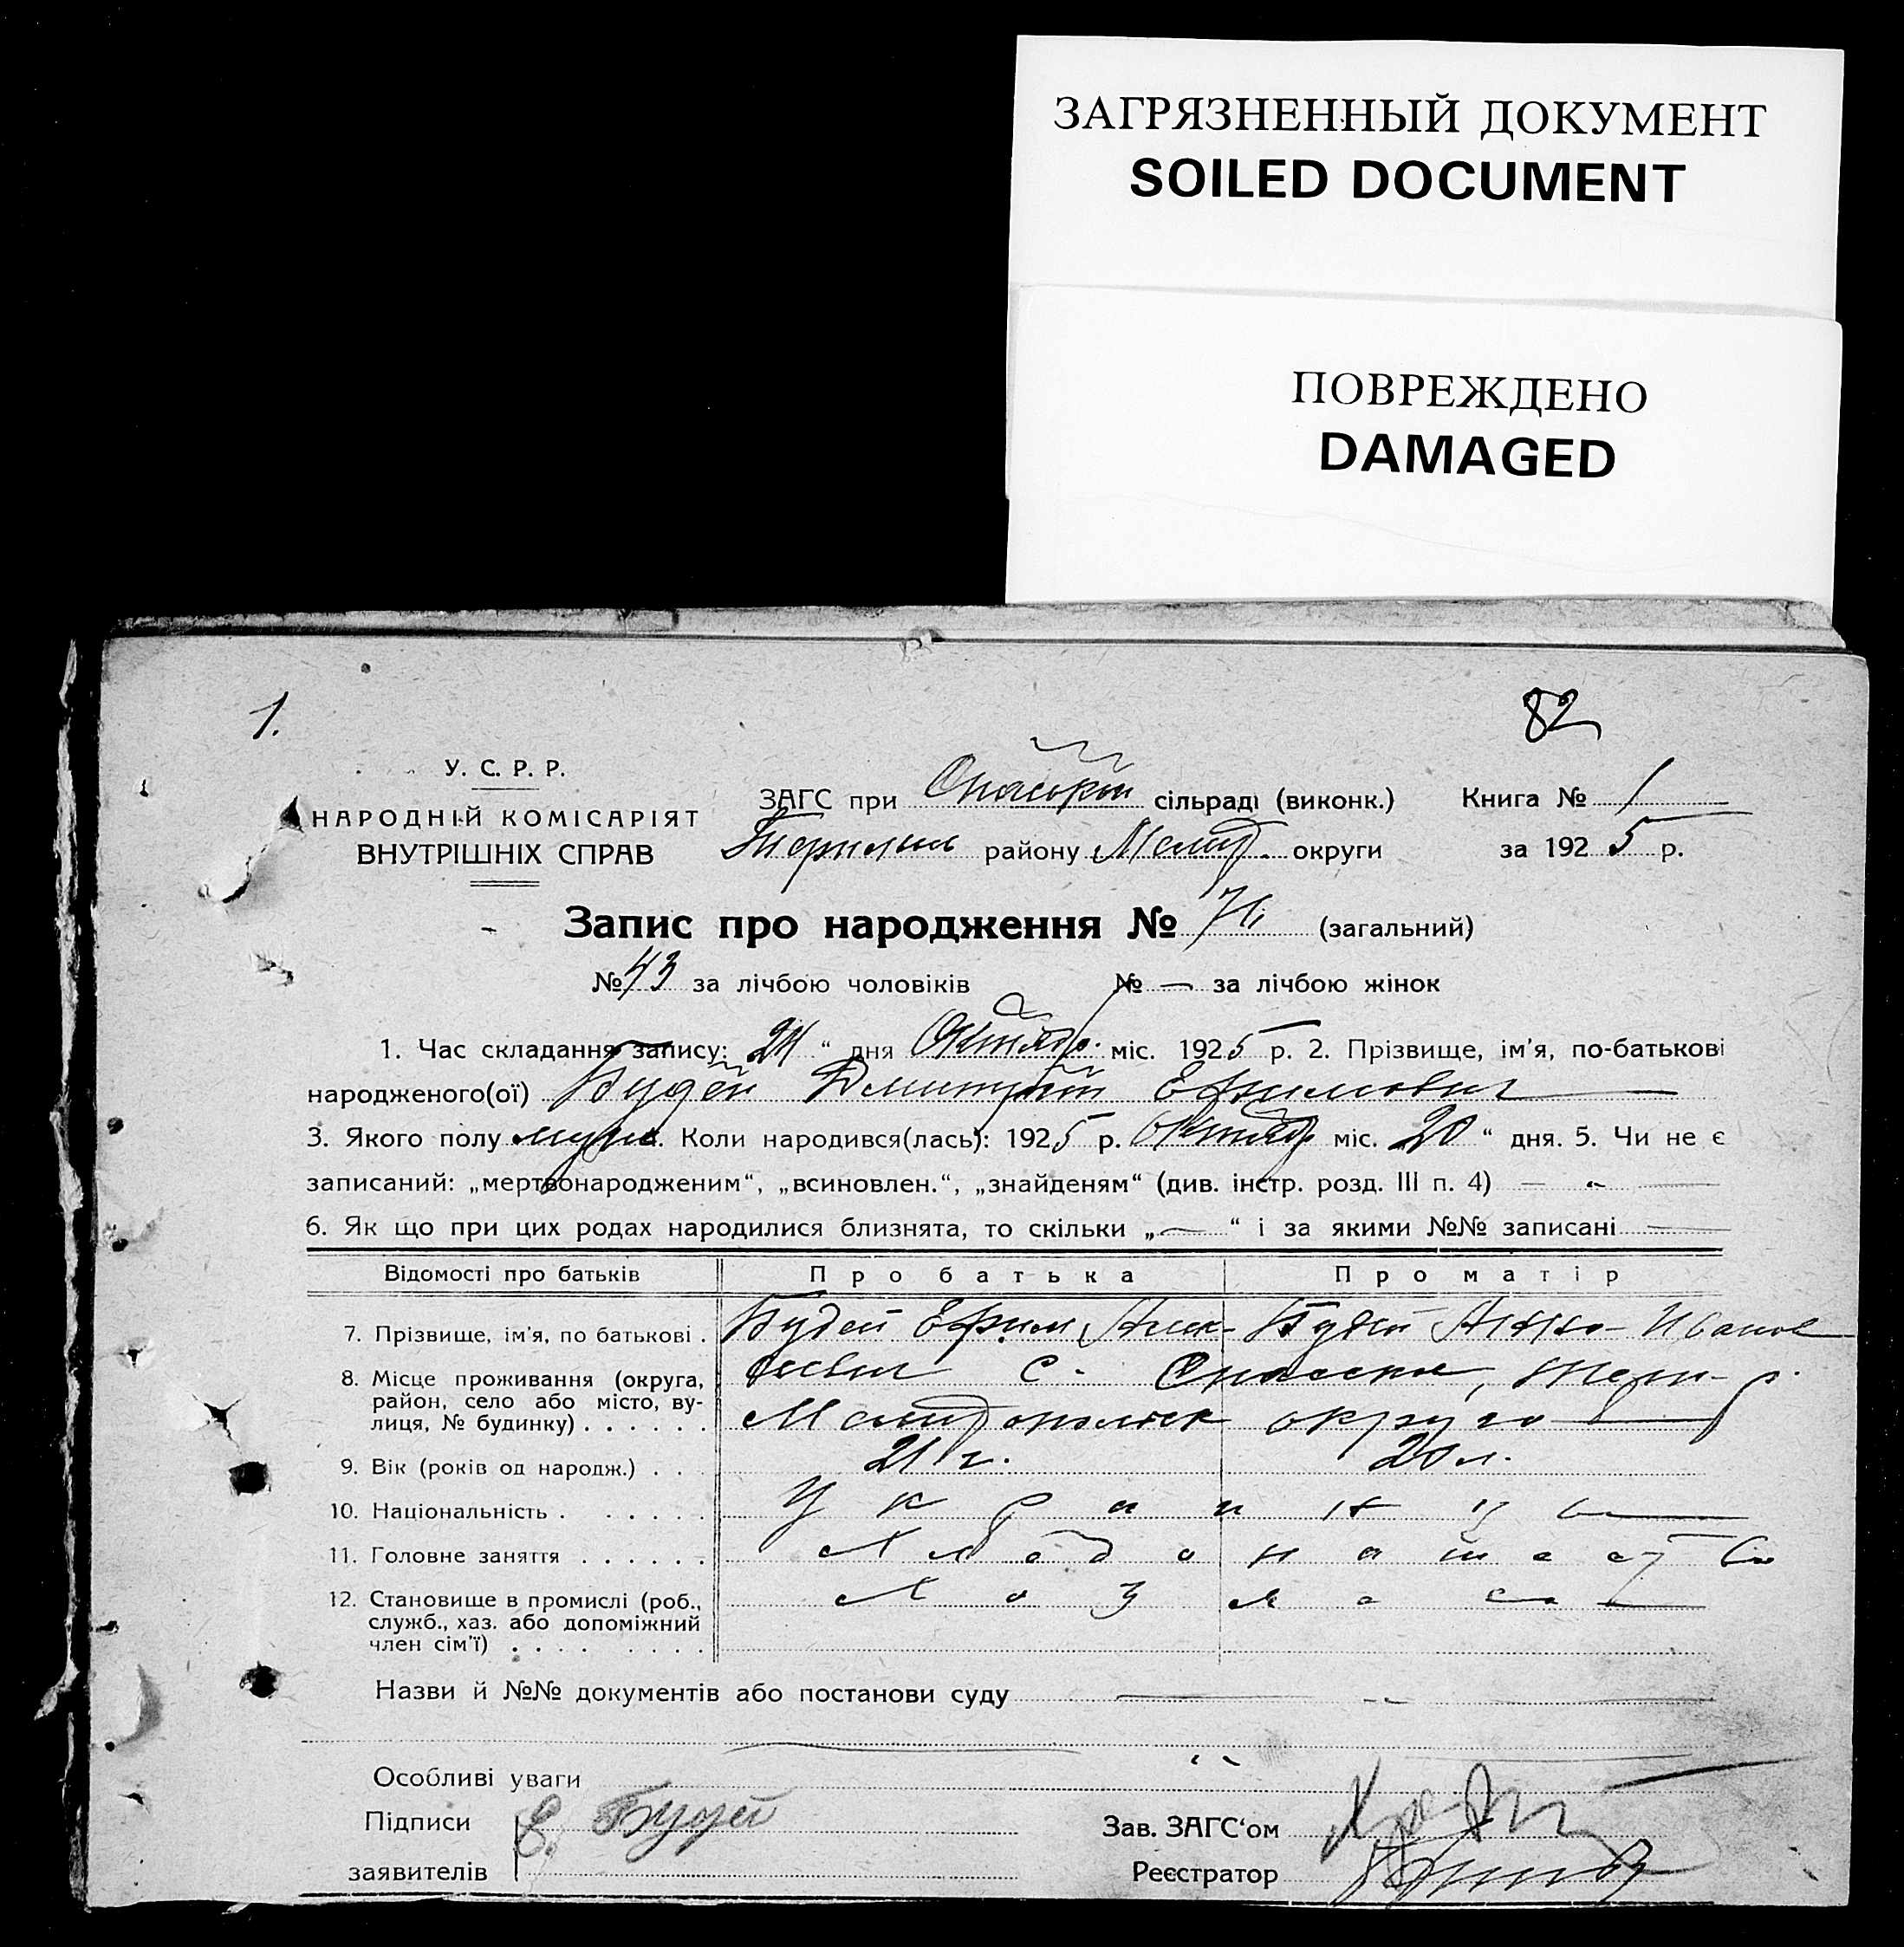 ЗАГРЯЗНЕННЫЙ ДОКУМЕНТ
SOILED DOCUMENT
ПОВРЕЖДЕНО
DAMAGED
1.
82
У. С. Р. Р.
НАРОДНІЙ КОМІСАРІЯТ
ВНУТРІШНІХ СПРАВ
ЗАГС при сільраді (виконк.) Книга № 1
району округи за 1925 р.
Запис про народження № (загальний)
№ 43 за лічбою чоловіків № — за лічбою жінок
1. Час складання запису: 24 “ дня Октябр. міс. 1925 р. 2. Прізвище, ім'я, по-батькові
народженого(ої) Будей Дмитрий Ефимович
3. Якого полу муж. Коли народився(лась): 1925 р. Октябр міс. 20 “ дня. 5. Чи не є
записаний: „мертвонародженим“, „всиновлен.“, „знайденям“ (див. інстр. розд. III п. 4) — „ —
6. Як що при цих родах народилися близнята, то скільки „ — “ і за якими №№ записані —
Відомості про батьків Про батька Про матір
7. Прізвище, ім'я, по батькові . Будей Ефим Алек- Будей Анна Иванов
8. Місце проживання (округа, с. Спасское,
район, село або місто, ву-
лиця, № будинку) . . . . . . Мелитопольск округа
9. Вік (років од народж.) . . . 21 г. 20 л.
10. Національність . . . . . . Украинцы
11. Головне заняття . . . . . . Хлебопашество
12. Становище в промислі (роб.,
служб., хаз. або допоміжний
член сім'ї) . . . . . . . .
Назви й №№ документів або постанови суду
Особливі уваги
Підписи Е. Будей
Зав. ЗАГС'ом
заявителів
Реєстратор